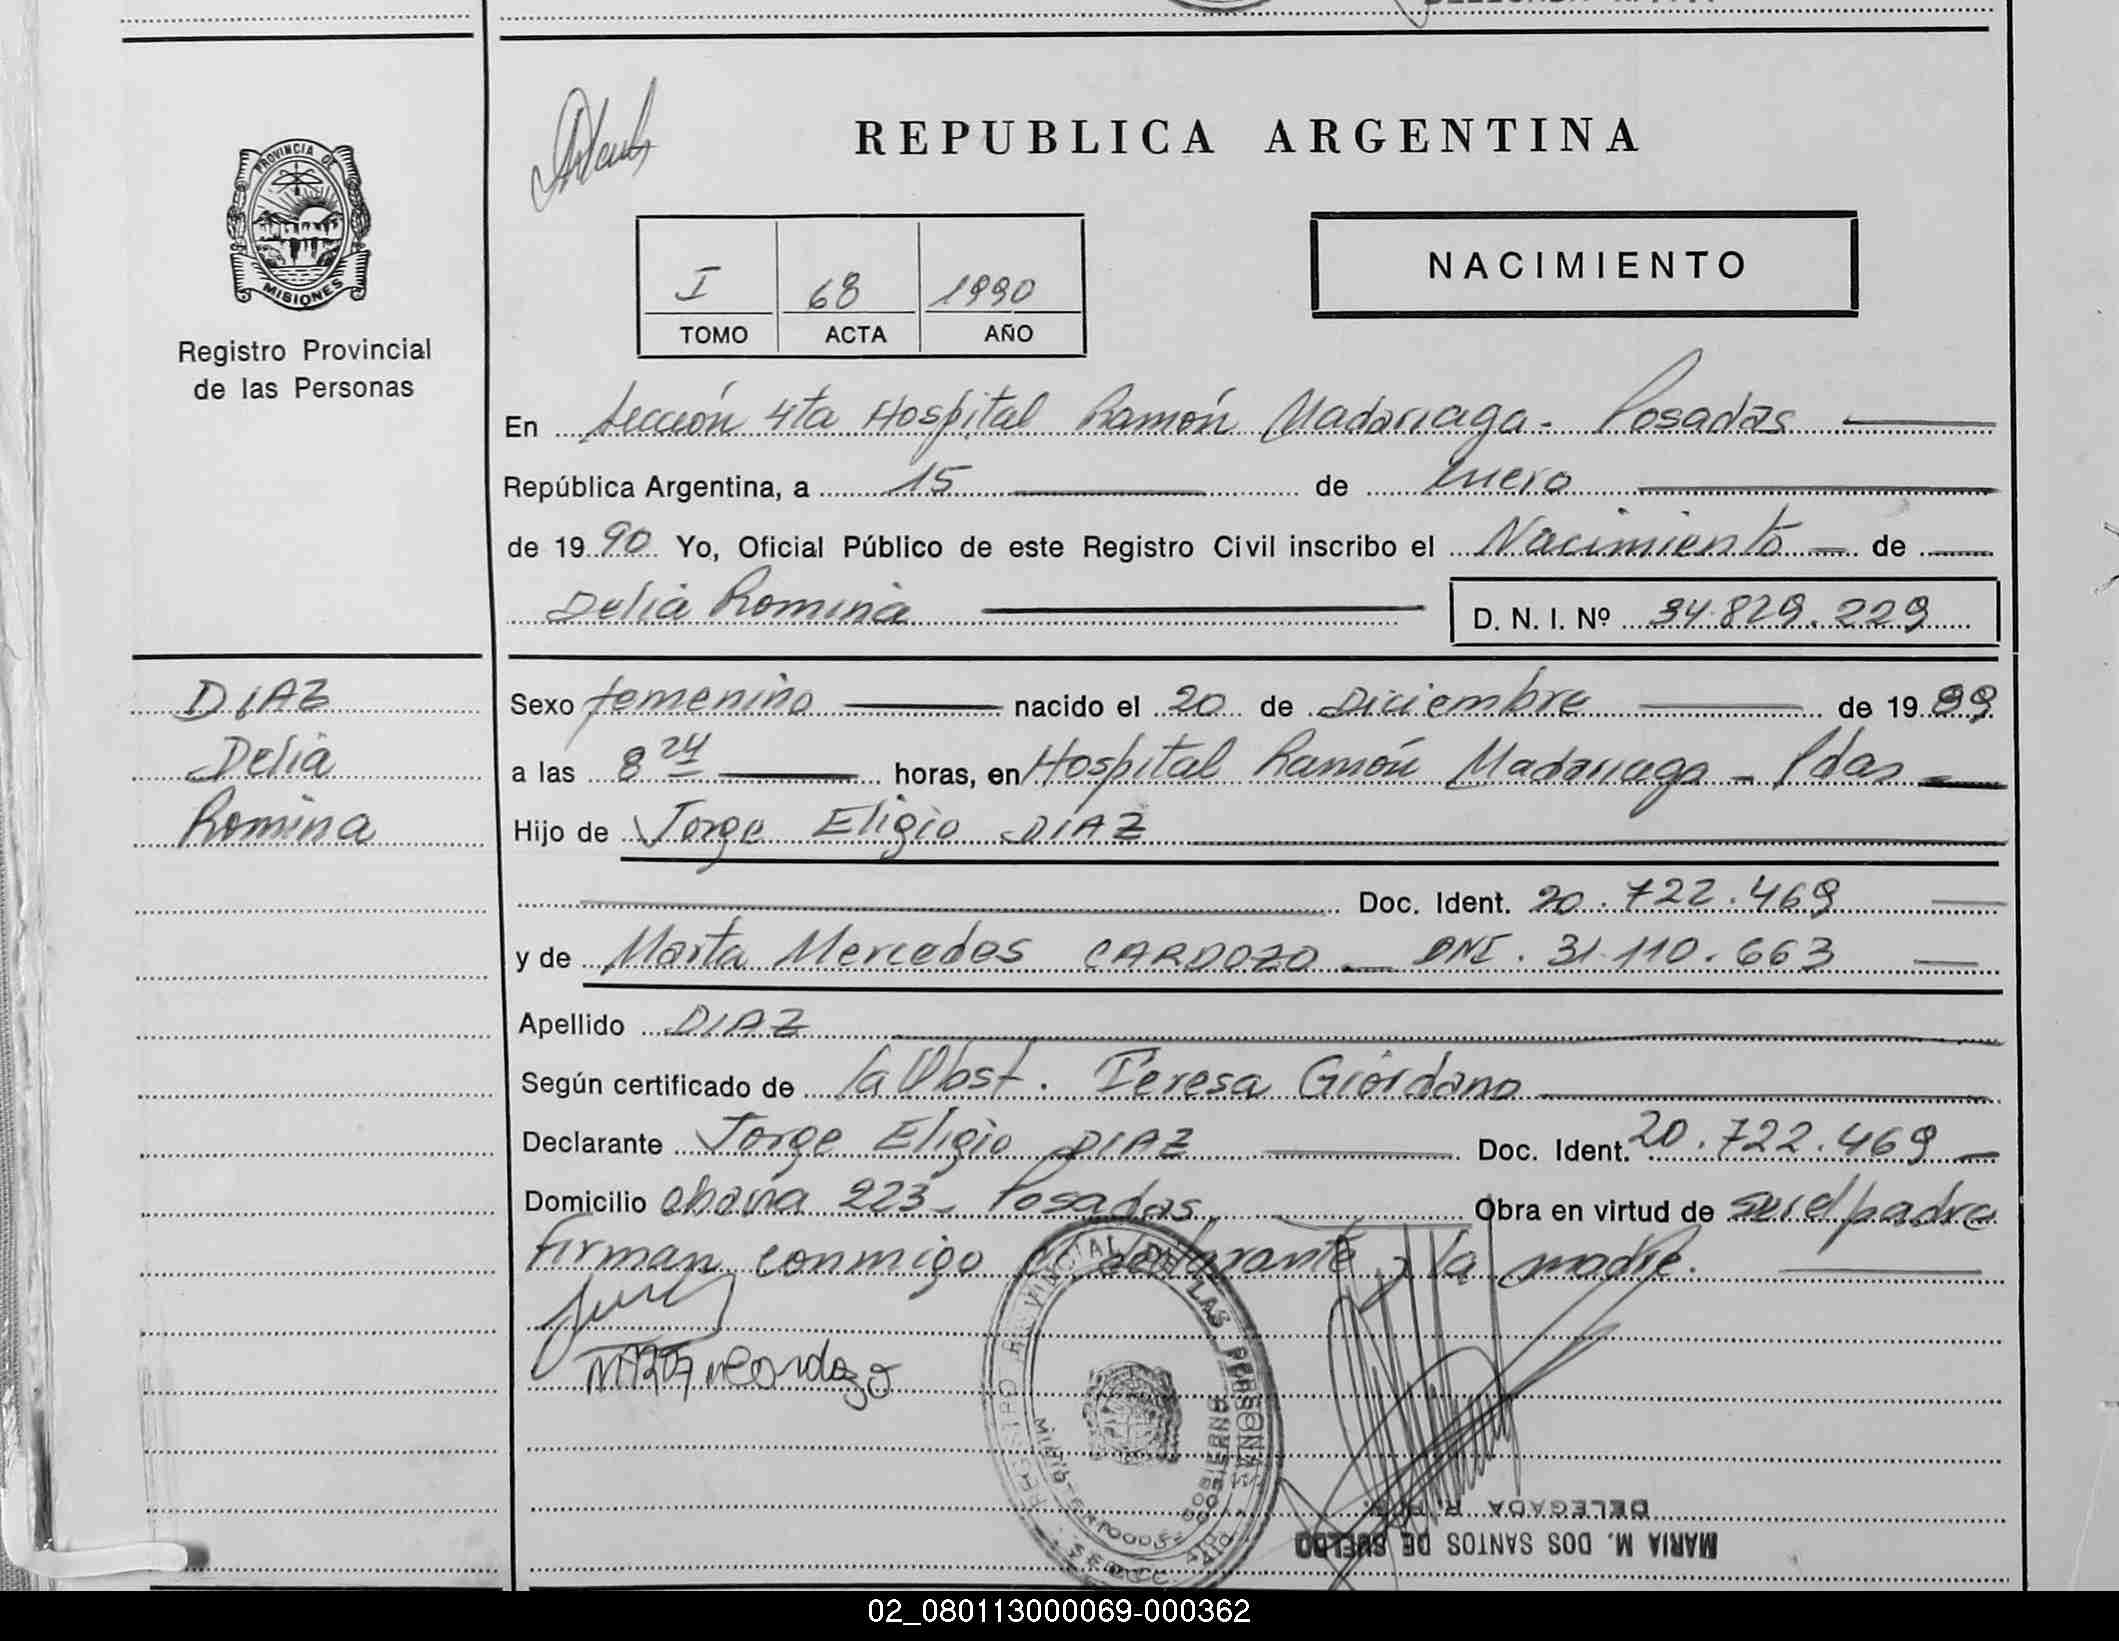 REPUBLICA ARGENTINA
PROVINCIA DE
MISIONES
Registro Provincial
de las Personas
I 68 1990
TOMO ACTA AÑO
NACIMIENTO
En Sección 4ta Hospital Ramón Madariaga - Posadas
República Argentina, a 15 de Enero
de 1990 Yo, Oficial Público de este Registro Civil inscribo el Nacimiento de
Delia Romina D. N. I. Nº 34.829.229
DIAZ
Delia
Romina
Sexo femenino nacido el 20 de Diciembre de 1989
a las 8 24 horas, en Hospital Ramón Madariaga - Pdas
Hijo de Jorge Eligio DIAZ
Doc. Ident. 20.722.469
y de Marta Mercedes CARDOZO - DNI. 31.110.663
Apellido DIAZ
Según certificado de la Obst. Teresa Giordano
Declarante Jorge Eligio DIAZ Doc. Ident. 20.722.469
Domicilio 223 - Posadas Obra en virtud de ser el padre
firman conmigo el declarante y la madre.
MARIA M. DOS SANTOS DE SUELDO
DELEGADA R. P. P.
02_080113000069-000362